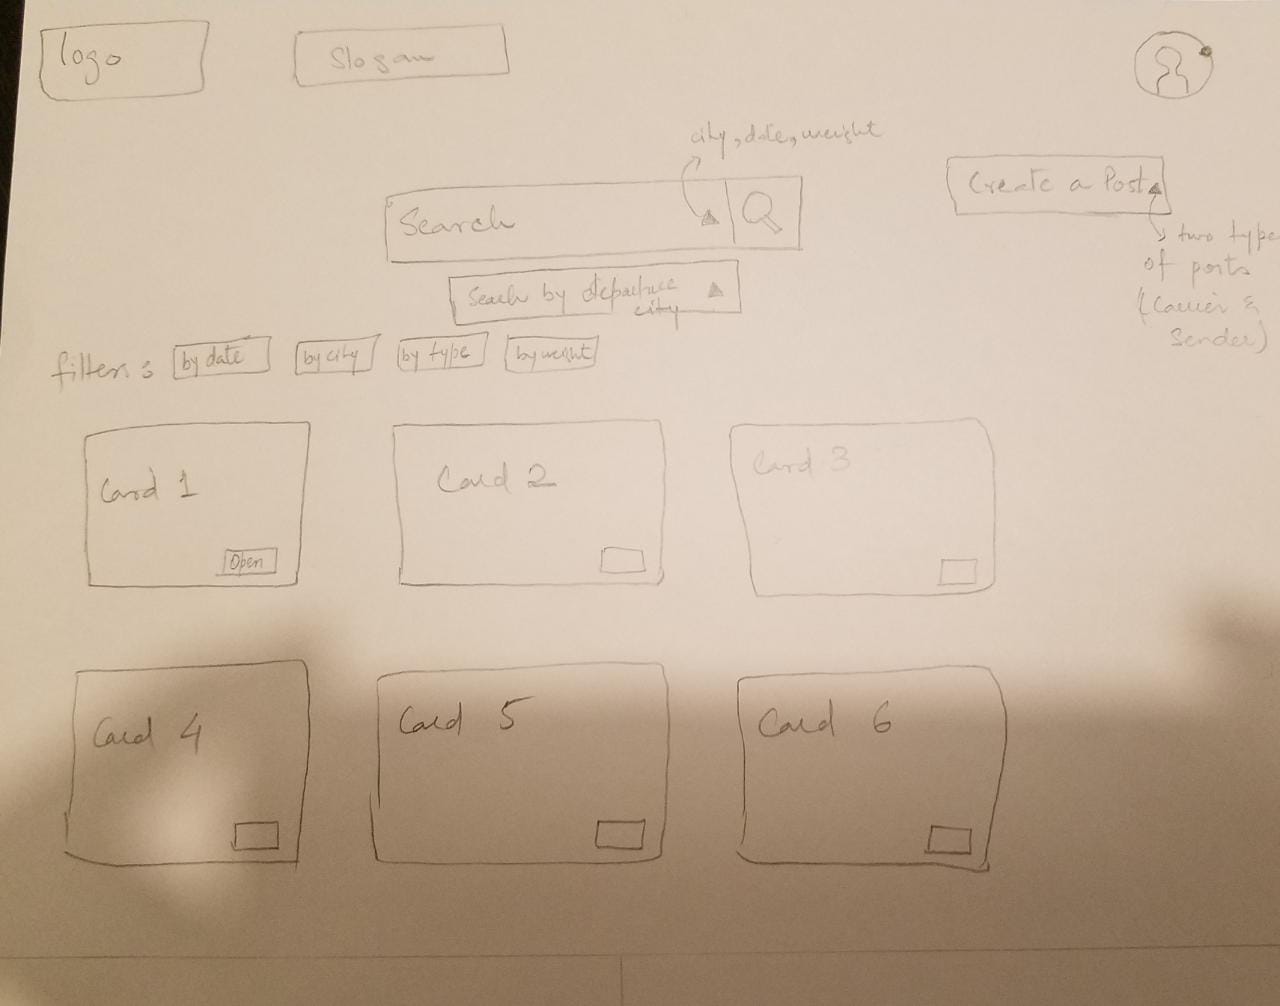 logo
Slogan
city, date, weight
Create a Post
Search
two type
of posts
(Carrier &
Sender)
Search by departure
city
filters :
by date
by city
by type
by weight
Card 1
Open
Card 2
Card 3
Card 4
Card 5
Card 6